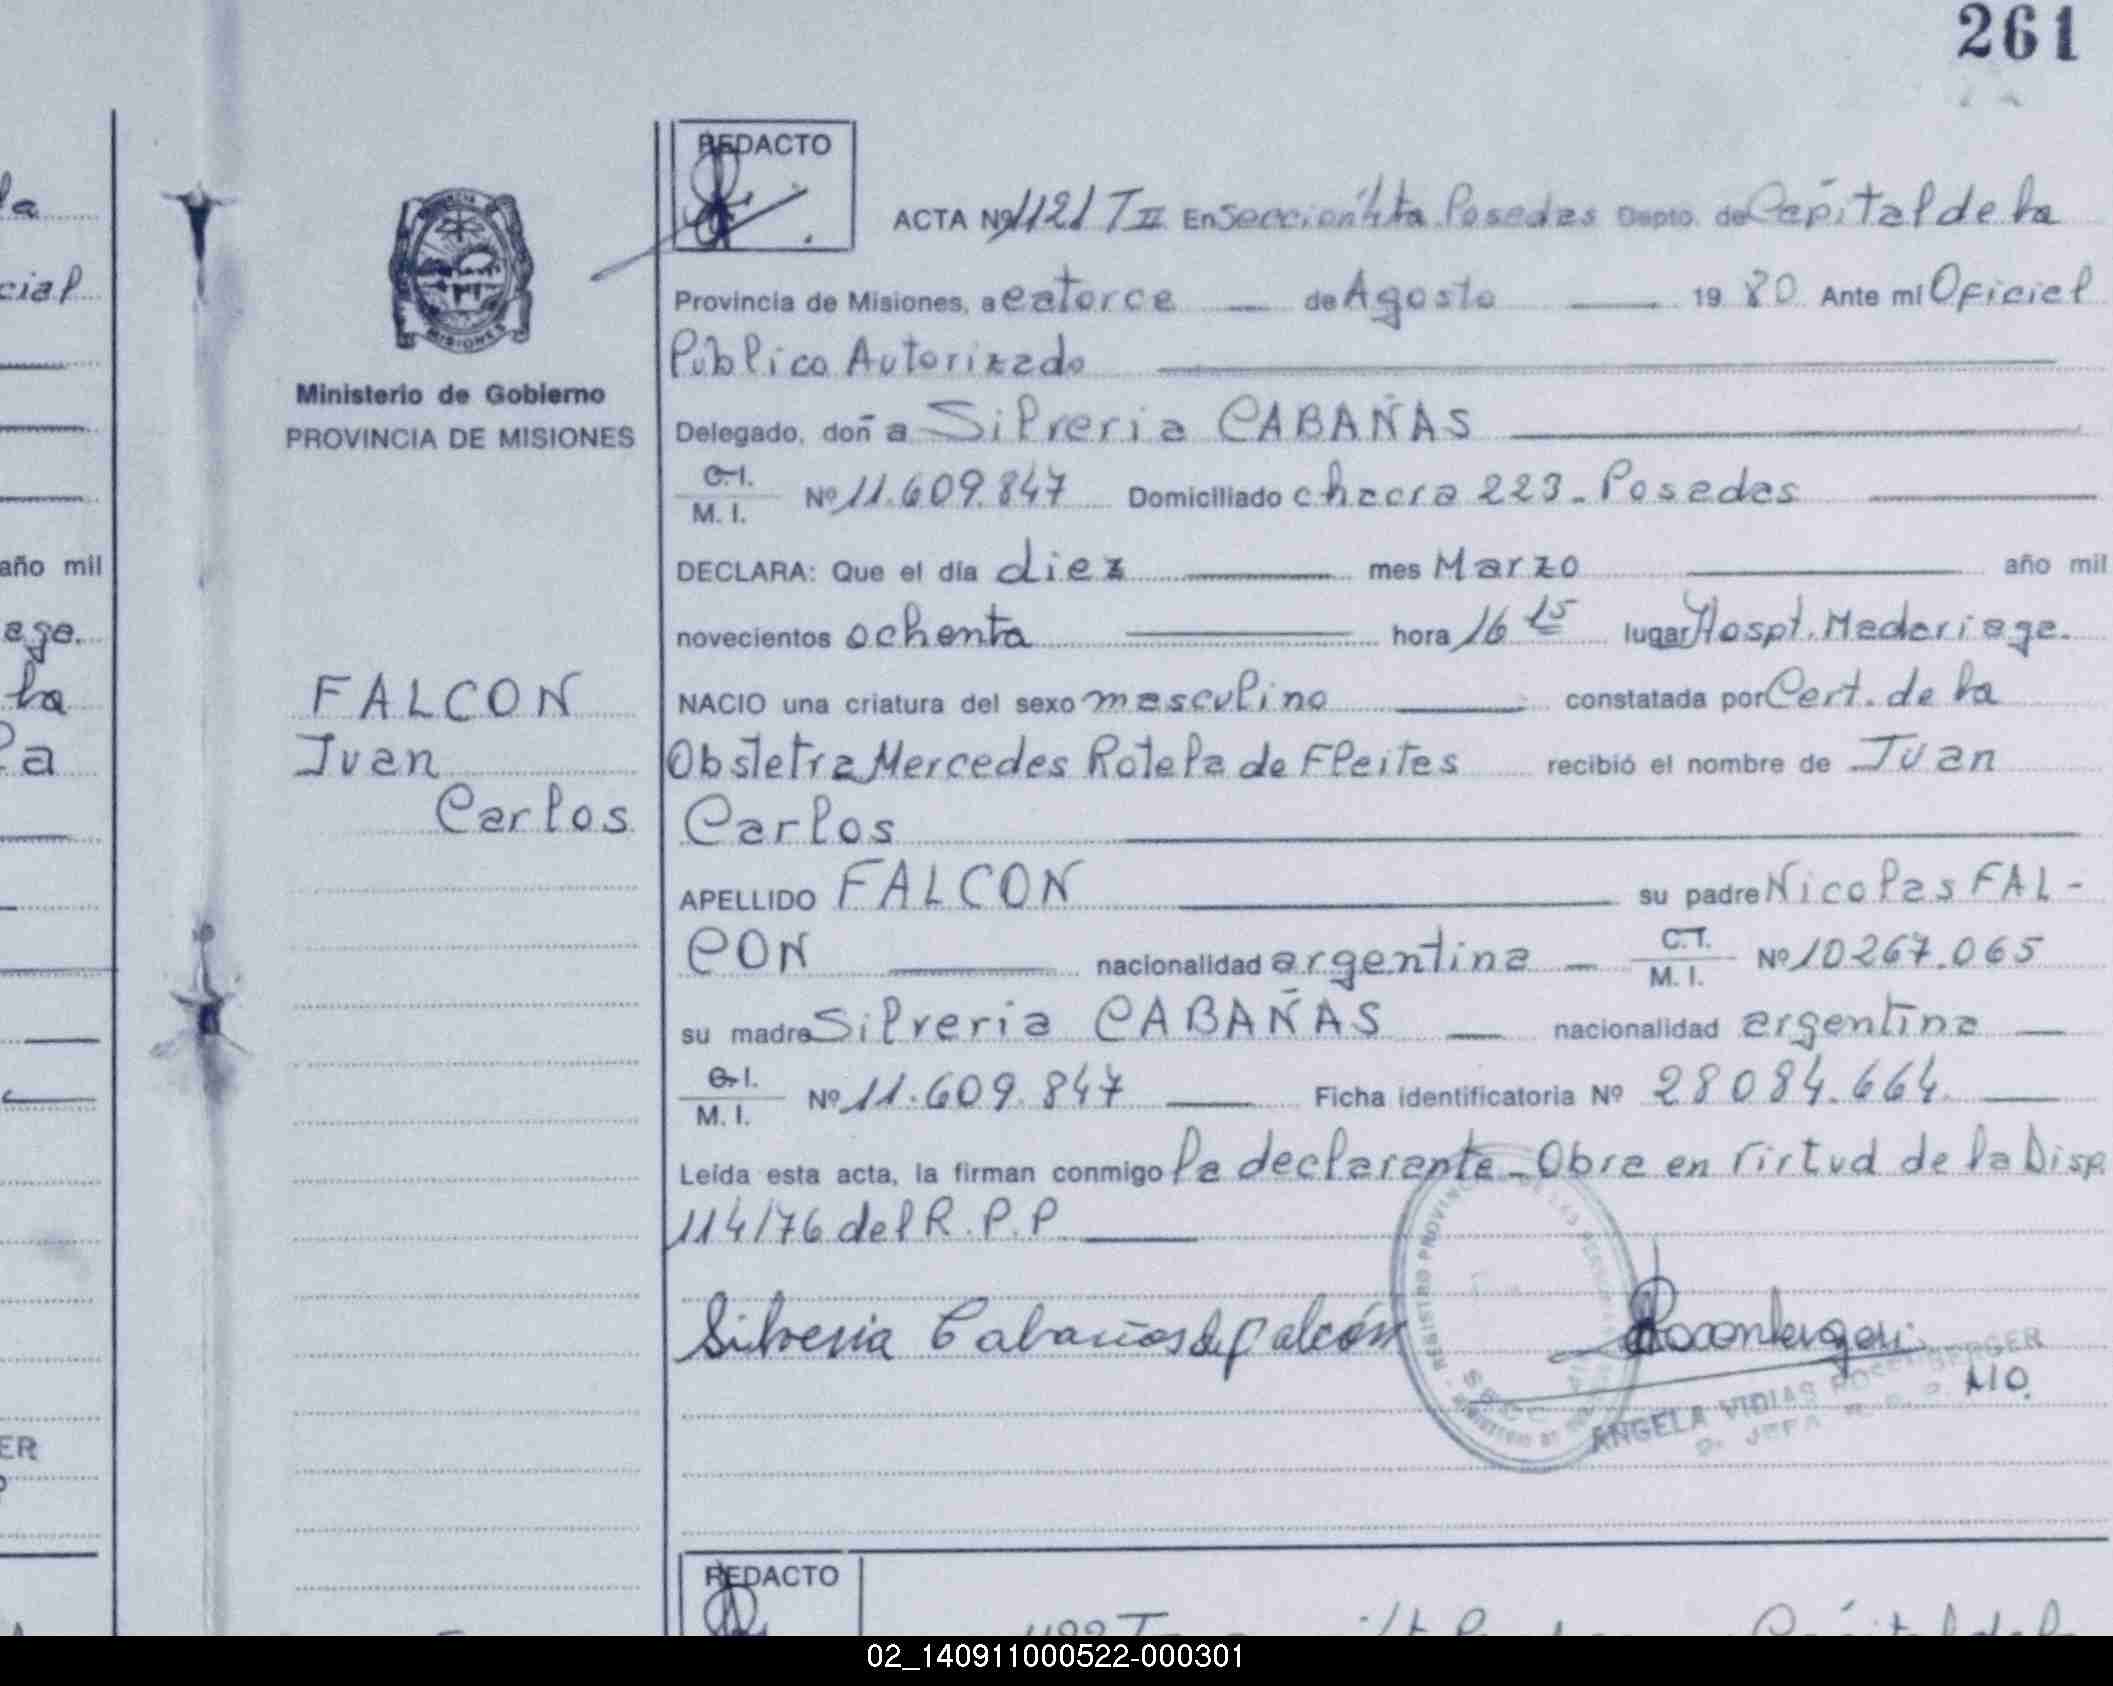 261
la
cial
año mil
age.
la
la
ER
P
MISIONES
Ministerio de Gobierno
PROVINCIA DE MISIONES
FALCON
Juan
Carlos
REDACTO
ACTA Nº 1121 T II En Seccion 4ta Posadas Depto. de Capital de la
Provincia de Misiones, a catorce — de Agosto — 19 80 Ante mí Oficial
Público Autorizado
Delegado, doña Silveria CABAÑAS
C.I.
M. I. Nº 11.609.847 Domiciliado chacra 223 - Posadas
DECLARA: Que el día diez mes Marzo año mil
novecientos ochenta hora 16 15 lugar Hospt. Madariaga.
NACIO una criatura del sexo masculino constatada por Cert. de la
Obstetra Mercedes Rotela de Fleites recibió el nombre de Juan
Carlos
APELLIDO FALCON su padre Nicolas FAL-
CON nacionalidad argentina — C.I.
M. I. Nº 10267.065
su madre Silveria CABAÑAS — nacionalidad argentina —
C.I.
M. I. Nº 11.609.847 Ficha identificatoria Nº 28084.664
Leída esta acta, la firman conmigo la declarante - Obra en virtud de la Disp
114/76 del R.P.P
Silveria Cabañas de Falcón
Rosenberger
ANGELA VIDIAS ROSENBERGER
JEFA R. P. P.
REGISTRO PROVINCIAL DE LAS PERSONAS
REDACTO
02_140911000522-000301